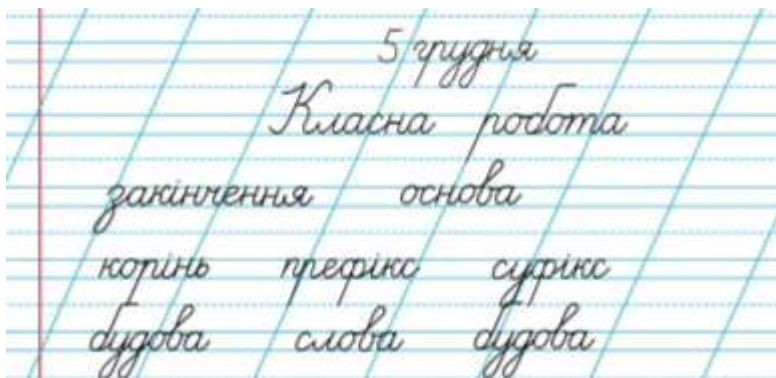 5 грудня
Класна робота
закінчення основа
корінь префікс суфікс
будова слова будова